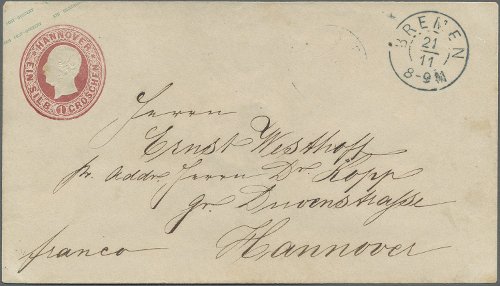 HANNOVER
EIN SILB. 1 GROSCHEN
BREMEN
21
11
8-9 M
Herrn
Ernst Westhoff
pr. Addr. Herrn Dr. Kopp
gr. Duvenstraße
franco Hannover